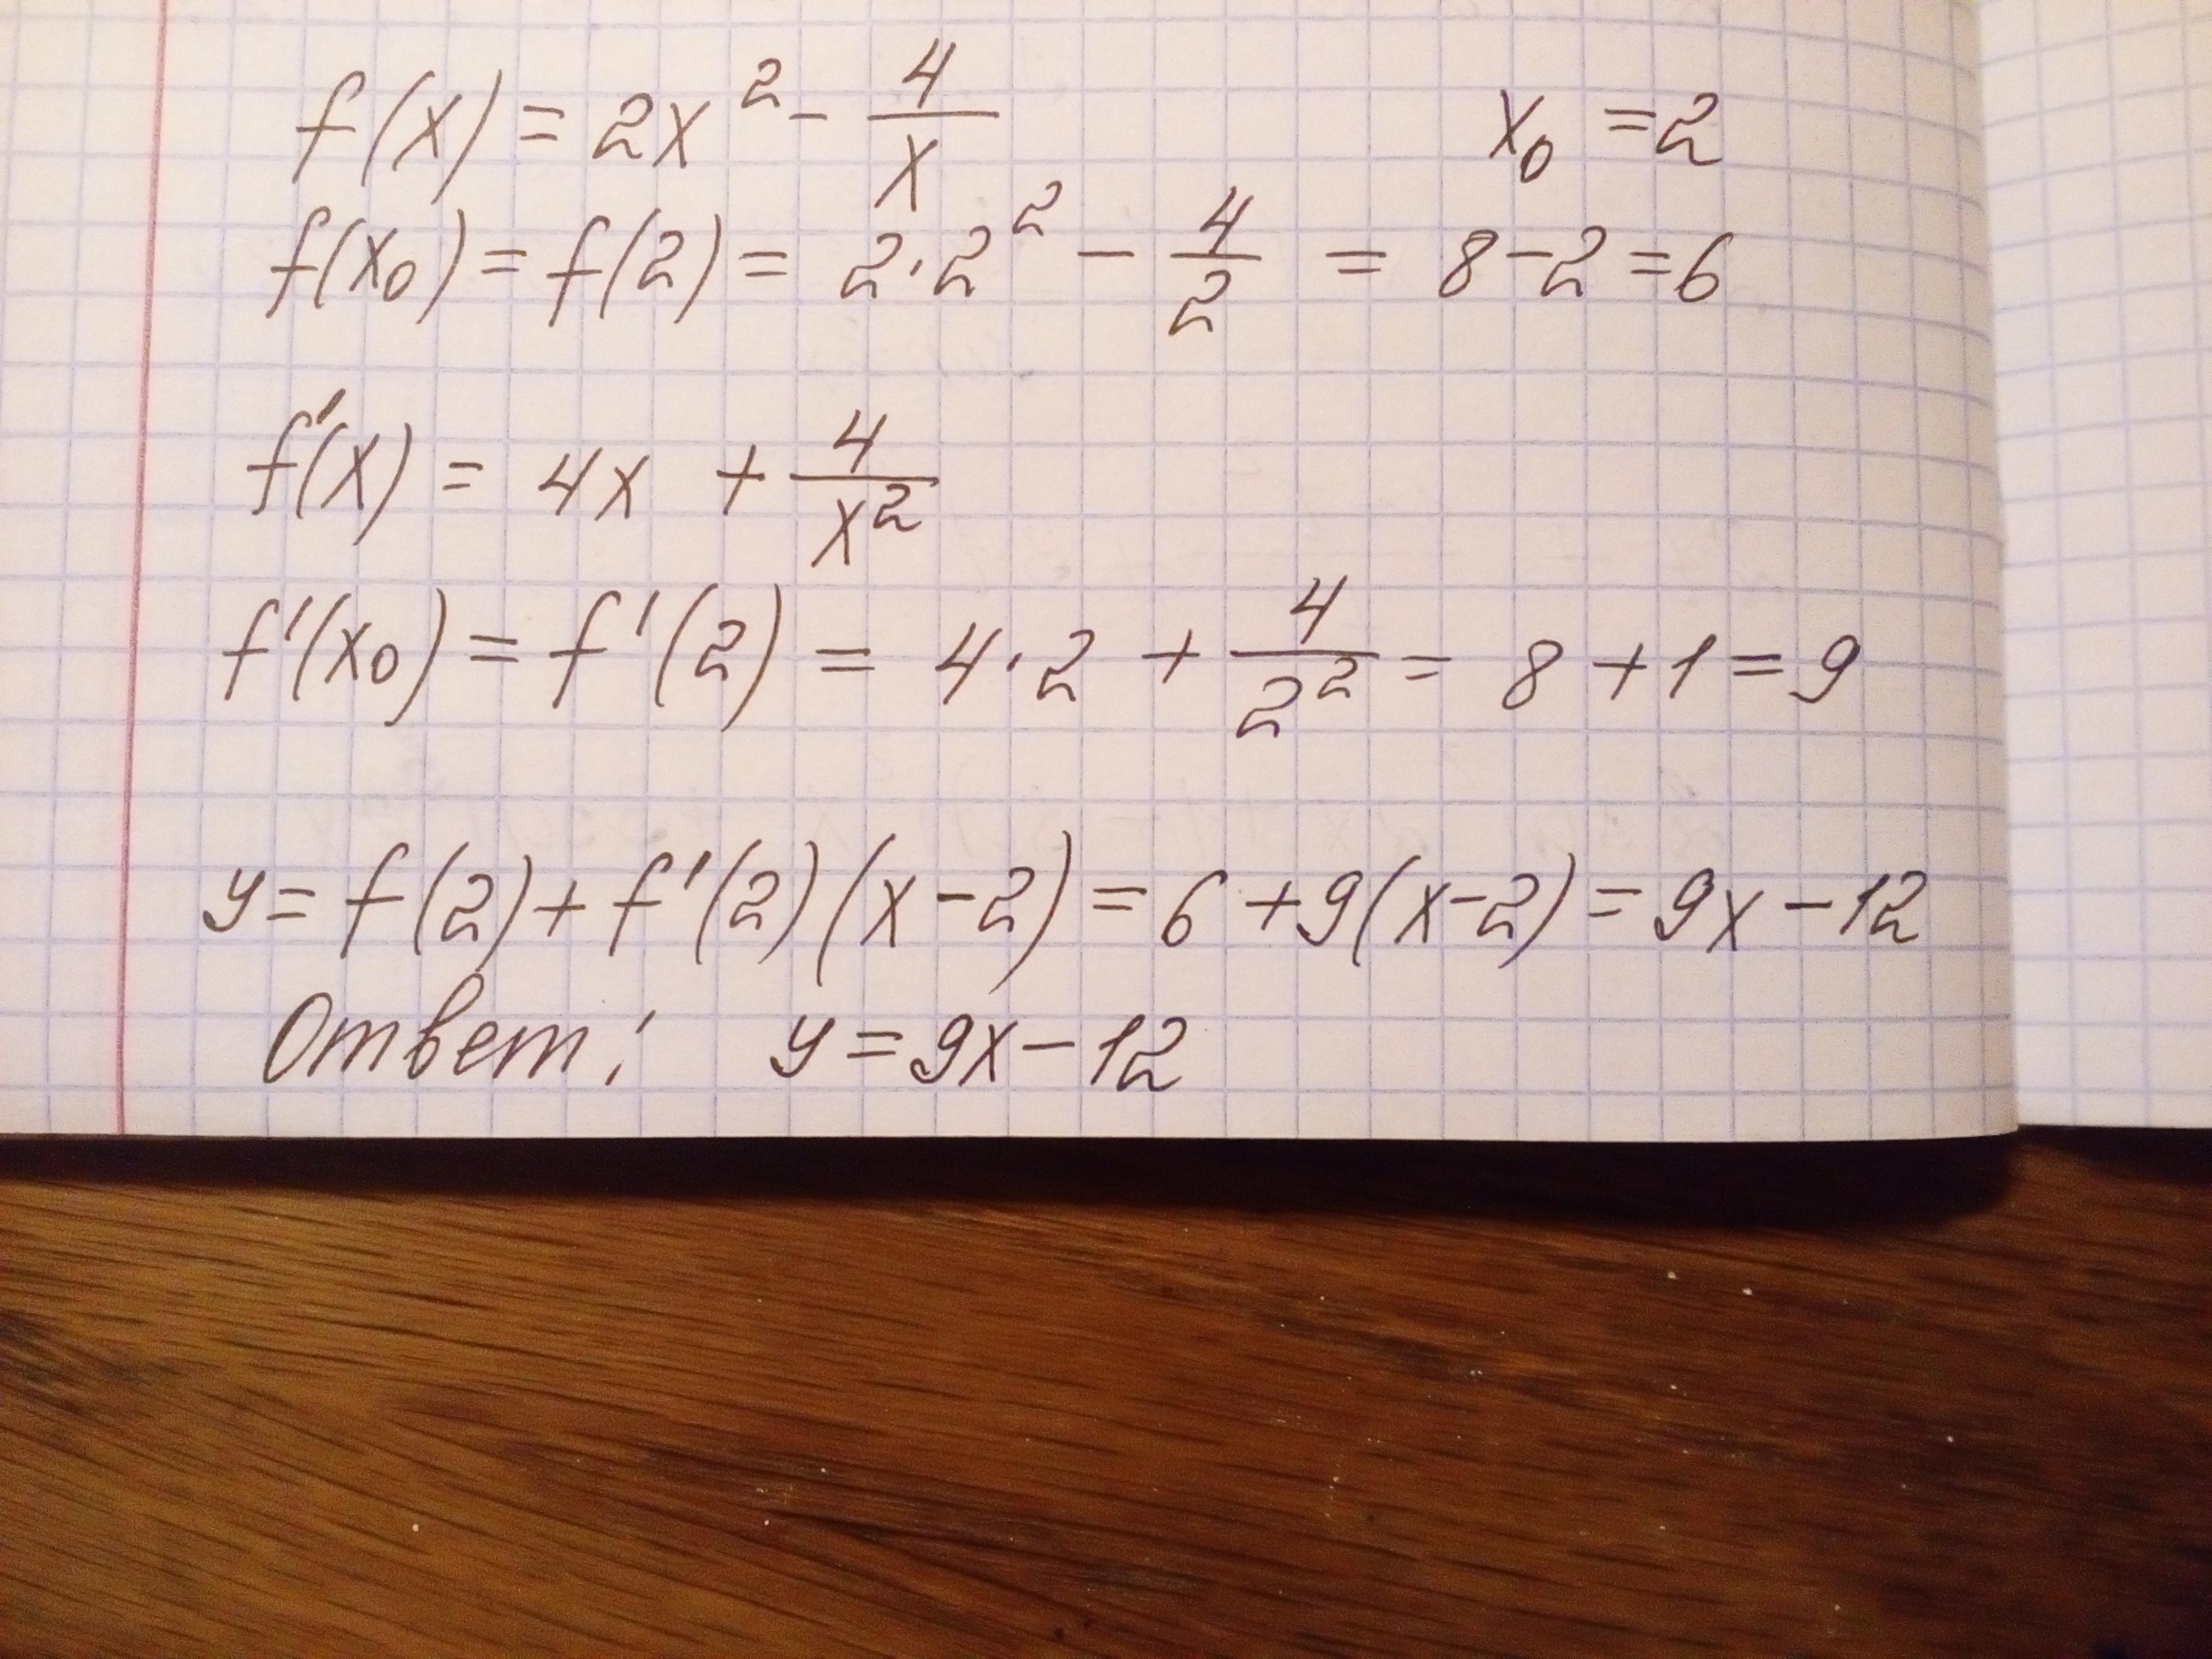 f(x) = 2x² - 4/x x₀ = 2
f(x₀) = f(2) = 2·2² - 4/2 = 8-2=6
f'(x) = 4x + 4/x²
f'(x₀) = f'(2) = 4·2 + 4/2² = 8+1=9
y= f(2)+f'(2)(x-2)=6+9(x-2)=9x-12
Ответ: y=9x-12